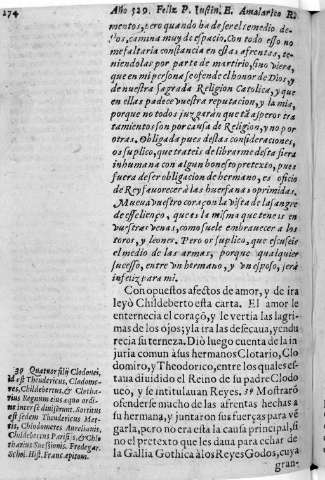 274 Año 529. Feliz P. Iustin. E. Amalarico R.
mentos, pero quando ha de ser el remedio de-
llos, camina muy de espacio. Con todo esso no
me faltaria constancia en estas afrentas, te-
niendolas por parte de martirio, sino viera,
que en mi persona se ofende el honor de Dios, y
de nuestra sagrada Religion Catolica, y que
en ellas padece vuestra reputacion, y la mia,
porque no todos juzgarán que tã asperos tra
tamientos son por causa de Religion, y no por
otras. Obligada pues destas consideraciones,
os suplico, que trateis de librarme desta fiera
inhumana con algun honesto pretexto, pues
fuera de ser obligacion de hermano, es oficio
de Rey fauorecer à las huerfanas oprimidas.
Mueua vuestro coraçon la vista de la sangre
de esse lienço, que es la misma que teneis en
vuestras venas, como suele embrauecer a los
toros, y leones. Pero os suplico, que escuseis
el medio de las armas, porque qualquier
sucesso, entre vn hermano, y vn esposo, serà
infeliz para mi.
Con opuestos afectos de amor, y de ira
leyò Childeberto esta carta. El amor le
enternecia el coraçõ, y le vertia las lagri
mas de los ojos; y la ira las desecaua, y endu
recia su terneza. Diò luego cuenta de la in
juria comun à sus hermanos Clotario, Clo
domiro, y Theodorico, entre los quales es-
taua diuidido el Reino de su padre Clodo
ueo, y se intitulauan Reyes. 39 Mostrarõ
ofenderse mucho de las afrentas hechas a
su hermana, y juntaron sus fuerças para vẽ
garla, pero no era esta la causa principal, si
no el pretexto que les daua para echar de
la Gallia Gothica à los Reyes Godos, cuya
gran-
39 Quatuor filij Clodouei,
id est Theudericus, Clodome-
res, Childebertus, & Clotha-
rius Regnum eius aquo ordi-
ne inter se diuiserunt. Sortitus
est sedem Theudericus Met-
tis, Chlodomeres Aurelianis,
Childebertus Parisijs, & Chlo
tharius Suessionis. Fredegar.
Schol. Hist. Franc. epitom.